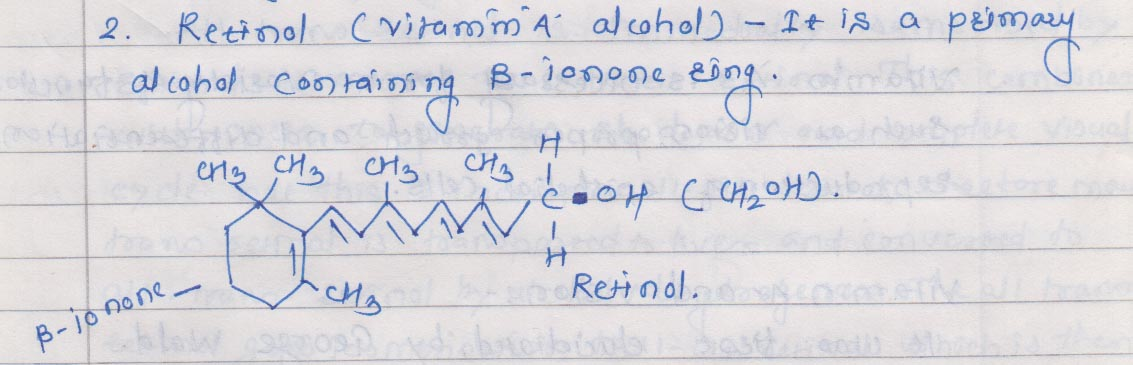 2. Retinol (vitamin A- alcohol) - It is a primary
alcohol containing B-ionone ring.
CH3 CH3 CH3 CH3 H
C OH (CH2OH).
H
β-ionone CH3 Retinol.